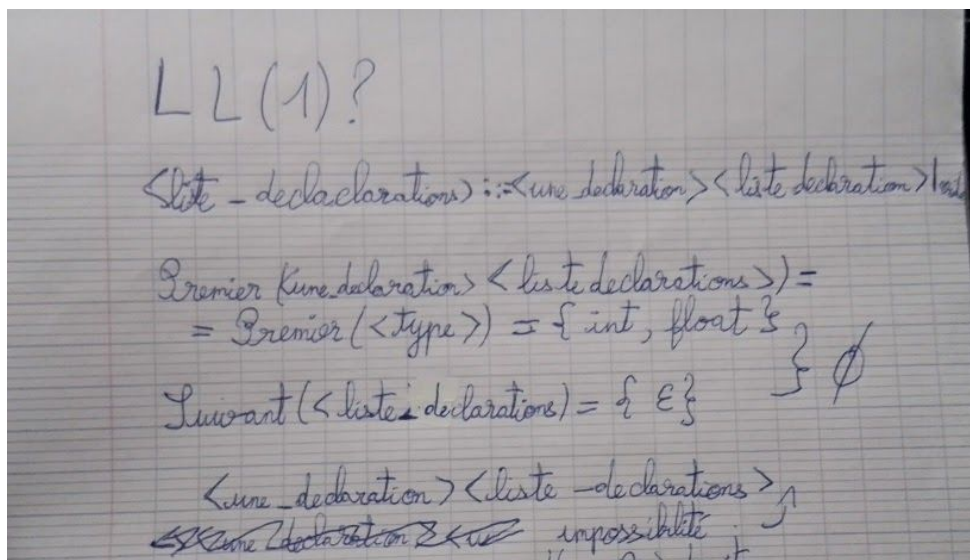 LL(1)?
<liste_declaclarations> ::= <une_declaration> <liste declaration> |
Premier (<une_declaration> <liste declarations>) =
= Premier (<type>) = { int, float }
} ∅
Suivant (<liste_declarations) = { ε }
<une_declaration> <liste_declarations>
impossibilité